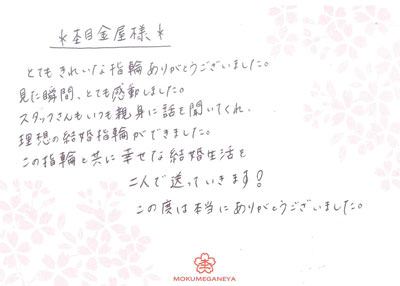 *杢目金屋様*
とてもきれいな指輪ありがとうございました。
見た瞬間、とても感動しました。
スタッフさんもいつも親身に話を聞いてくれ、
理想の結婚指輪ができました。
この指輪と共に幸せな結婚生活を
二人で送っていきます!
この度は本当にありがとうございました。
MOKUMEGANEYA